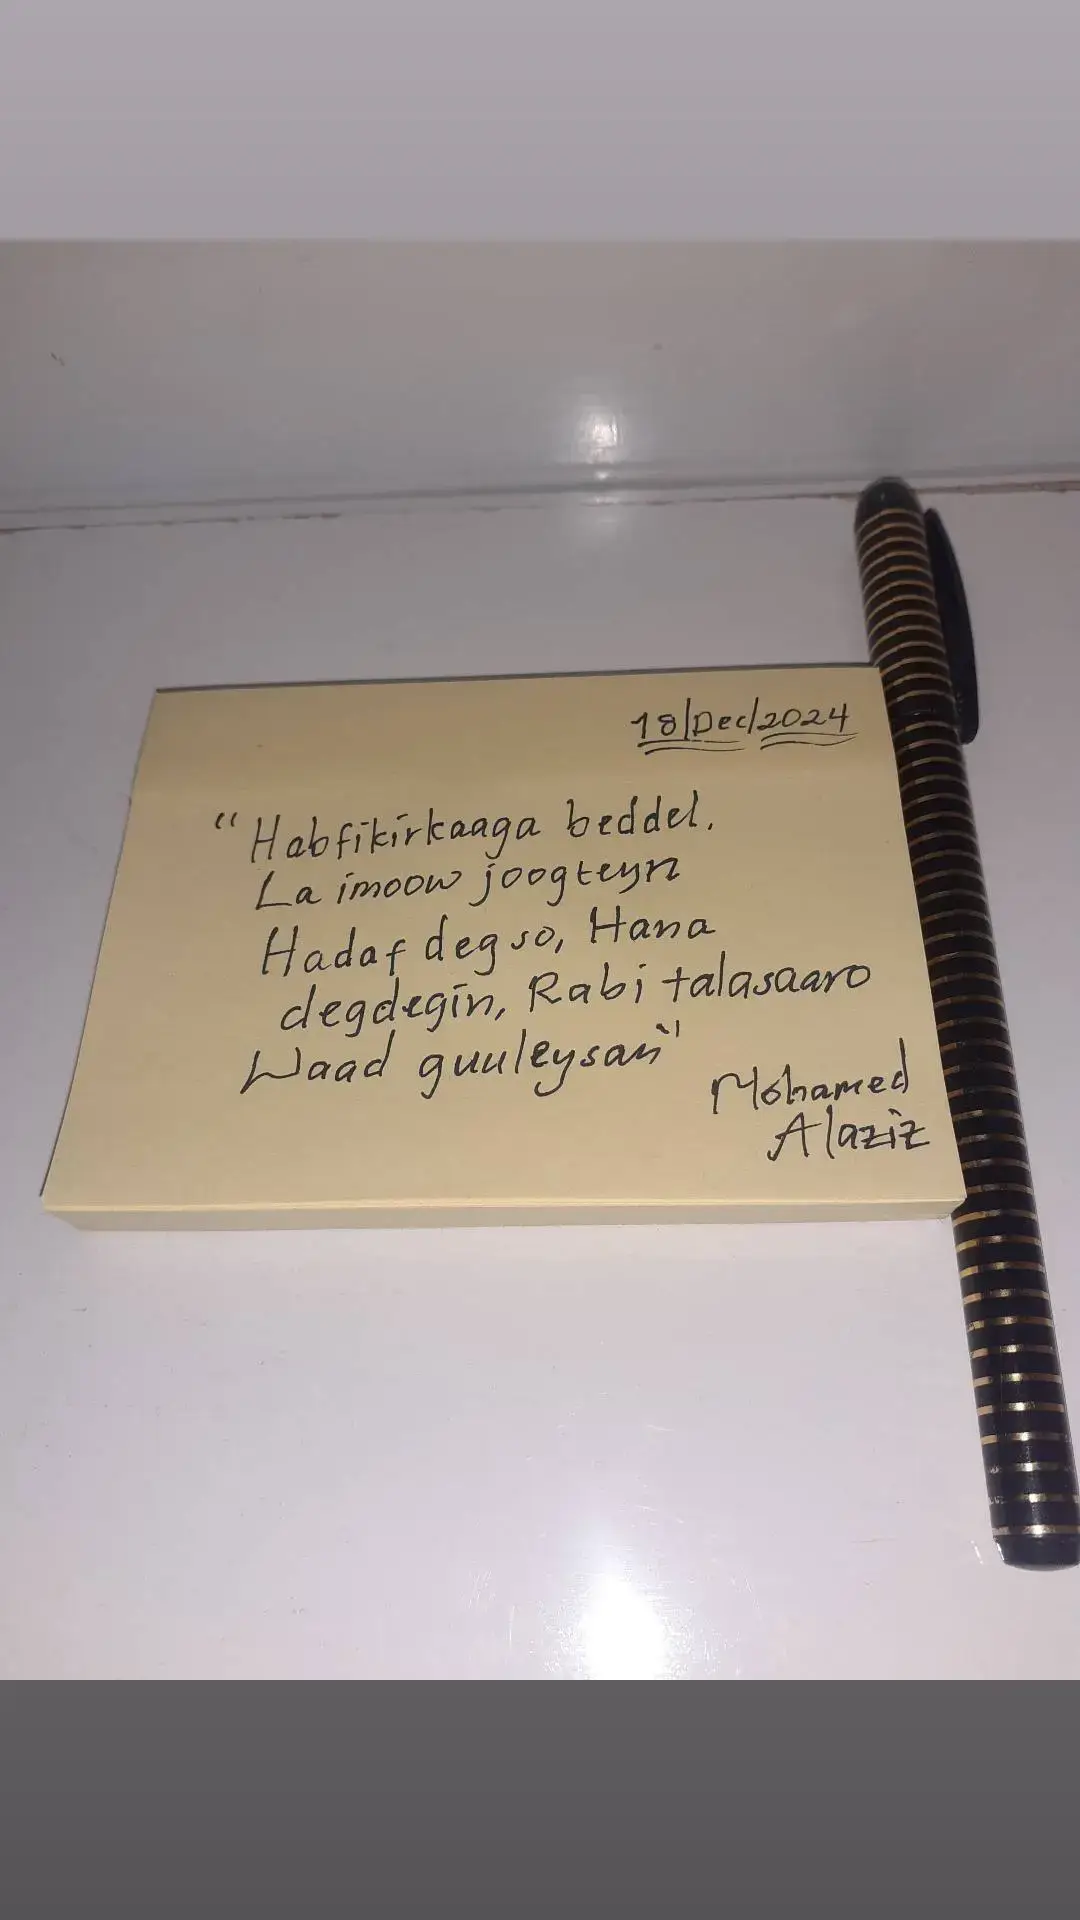 18/Dec/2024
"Habfikirkaaga beddel.
La imoow joogteyn
Hadaf degso, Hana
degdegin, Rabi talasaaro
Waad guuleysan"
Mohamed
Alaziz